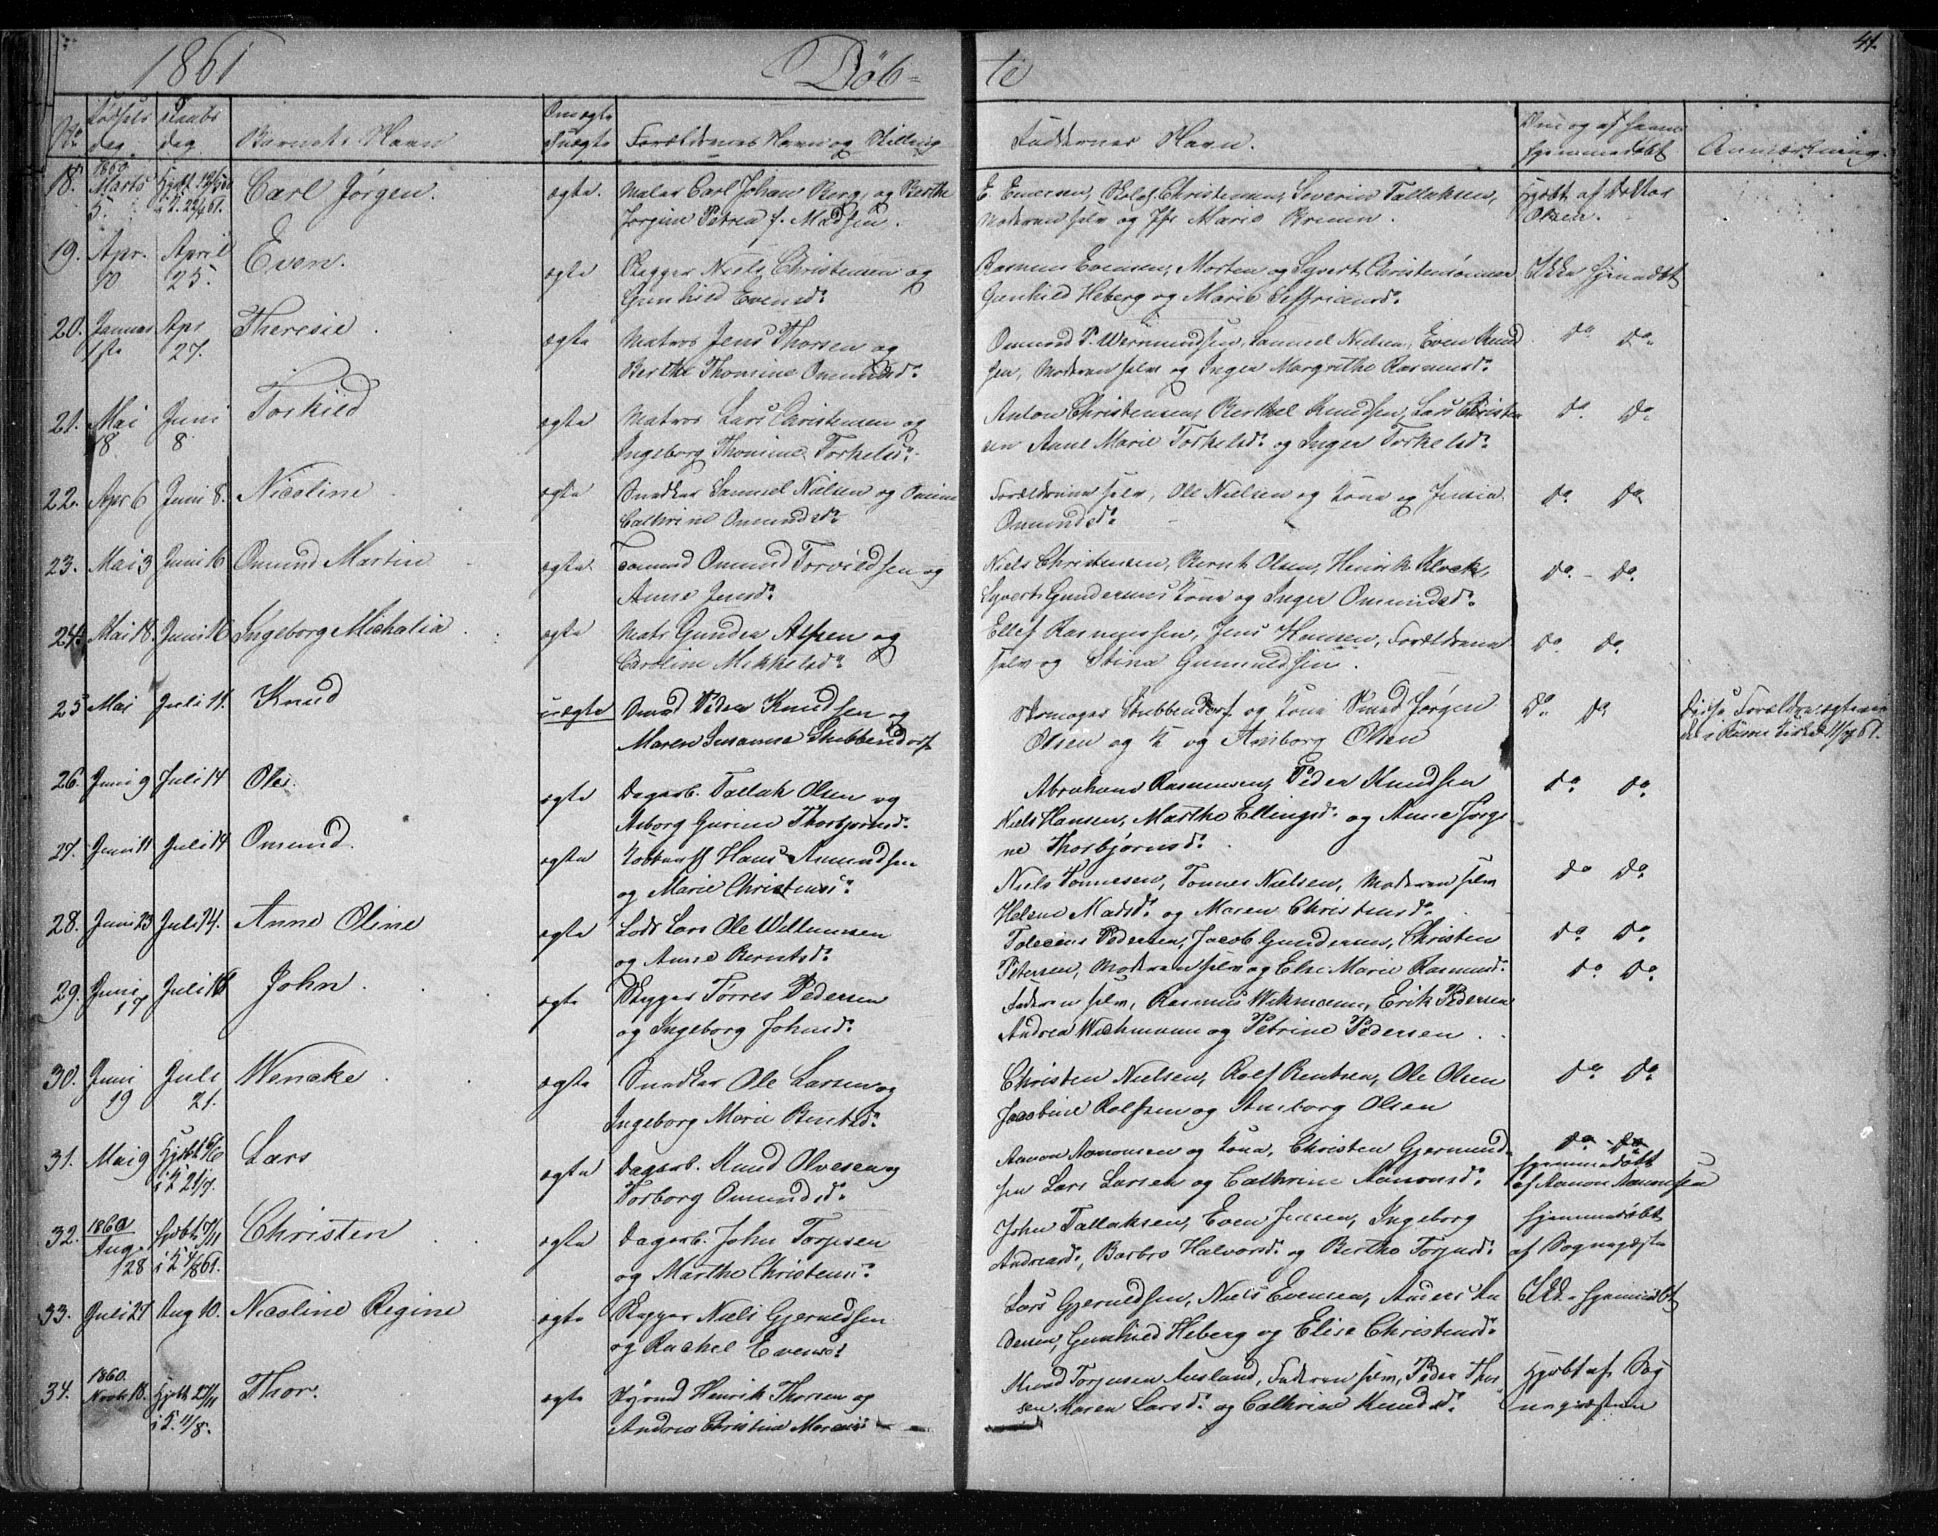 1861 Døb= te 41.
No Fødsels dag Daabs dag Barnets Navn Om ægte Uægte Forældrenes Navn og Stilling Faddernes Navn. Om og af hvem hjemmedøbt Anmærkning.
18. 1860 Marts 5. Carl Jørgen. ægte. Maler Carl Johan Borg og Berthe
Jørgine Petrea f. Madsen.
E. Enersen, Christensen, Severin Tallaksen,
Moderen selv og Marie
Hjdbt af Doktor
Olsen.
19. Apr. 10 April 25. Even. ægte Skipper Niels Christensen og
Gunhild Evensd:
Rasmus Evensen, Morten og Syvert Christensønner
Gunhild Heberg og Marie
Ikke hjemdbt
20. Januar 1ste Apr 27. Theresie. ægte Matros Jens Thorsen og
Berthe Thomine Omundsd:
Omund T. Wermundsen, Samuel Nielsen, Even Knud
sen, Moderen selv og Inger Margrethe Rasmusd:
do do
21. Mai 18 Juni 8. Torkild ægte Matros Lars Christensen og
Ingeborg Thomine Torkelsd:
Anton Christensen, Berthel Knudsen, Lars Christen
sen Anne Marie Torkelsd: og Inger Torkelsd:
do do
22. Apr 6 Juni 8. Nicoline ægte Snedker Samuel Nielsen og
Cathrine Omundsd:
Forældrene selv, Ole Nielsen og Kone og
Omundsd:
do do
23. Mai 3 Juni 16 Omund Martin ægte Tomand Omund Torvildsen og
Anne Jensd:
Niels Christensen, Bernt Olsen, Henrik Klock,
Syvert Gundersens Kone og Inger Omundsd:
do - do
24. Mai 18. Juni 16 Ingeborg Michalia ægte Mats Gunder Alfsen og
Caroline Mikkelsd:
Ellef Rasmussen, Jens Hansen, Forældrene
selv og Stina Gunuldsen.
do do
25 Mai Juli 11. Knud uægte Smed Peder Knudsen og
Maren Susanne Stubbendorf
Skomager Stubbendorf og Kone Smed Jørgen
Olsen og K og Anborg Olsen
do do
Disse Forældre
26. Juni 9 Juli 14 Ole. ægte Dagarb. Tallak Olsen og
Asborg Gurine Thorbjørnsd.
Abraham Rasmussen, Peder Knudsen
Niels Hansen, Marthe Ellingsd: og Anne Jørgi
ne Thorbjørnsd:
do do
27. Juni 11 Juli 14 Omund. ægte Hans Amundsen
og Marie Christensd:
Niels Tønnesen, Tønnes Nielsen, Moderen selv
Helene Madsd: og Maren Christensd:
do do
28. Juni 23 Juli 14. Anne Oline ægte Lods Lars Ole Willumsen
og Anne Berntsd:
Tolecius Pedersen, Jacob Gundersen, Christen
Petersen, Moderen selv og Else Marie Rasmusd:
do do
29. Juni 17 Juli John. ægte Skipper Tørres Pedersen
og Ingeborg Johnsd:
Faderen selv, Rasmus Wichmann, Erik Pedersen
Andrea Wichmann og Petrine Pedersen.
do do
30. Juni 19 Juli 21. Wencke ægte Snedker Ole Larsen og
Ingeborg Marie Berntsd:
Christen Nielsen, Rolf Berntsen, Ole Olsen
Jacobine Rolfsen og Anborg Olsen
do do
31. Mai 9 Hjdbt i K 21/7. Lars ægte Dagarb. Knud Olvesen og
Torborg Omundsd:
Aanon Aanonsen og Kone, Christen Gjermund
sen Lars Larsen og Cathrine Aanonsd:
do do
hjemmedøbt
af Aanon Aanonsen
32. 1860 Aug. 28 Hjdbt i K 4/8 61. Christen ægte Dagarb. John Torjesen
og Marthe Christensd:
John Tallaksen, Even Jensen, Ingeborg
Andreasd:, Barbro Halvorsd: og Berthe Torjusd:
hjemmedøbt
af Sognepræsten
33. Juli 21 Aug 10. Nicoline Regine ægte Skipper Niels Gjeruldsen
og Rachel Evensd:
Lars Gjeruldsen, Niels Evensen, Anders An
dersen, Gunhild Heberg og Elise Christensd:
Ikke hjemmdbt
34. 1860. Novb 18. Hjdbt 27/11 i K. 11/8. Thor. ægte Henrik Thorsen og
Andrea Christine
Knud Torjusen Ausland, Faderen selv, Peder Thor
sen Maren Larsd: og Cathrine Knudsd:
Hjdbt af Sog
nepræsten